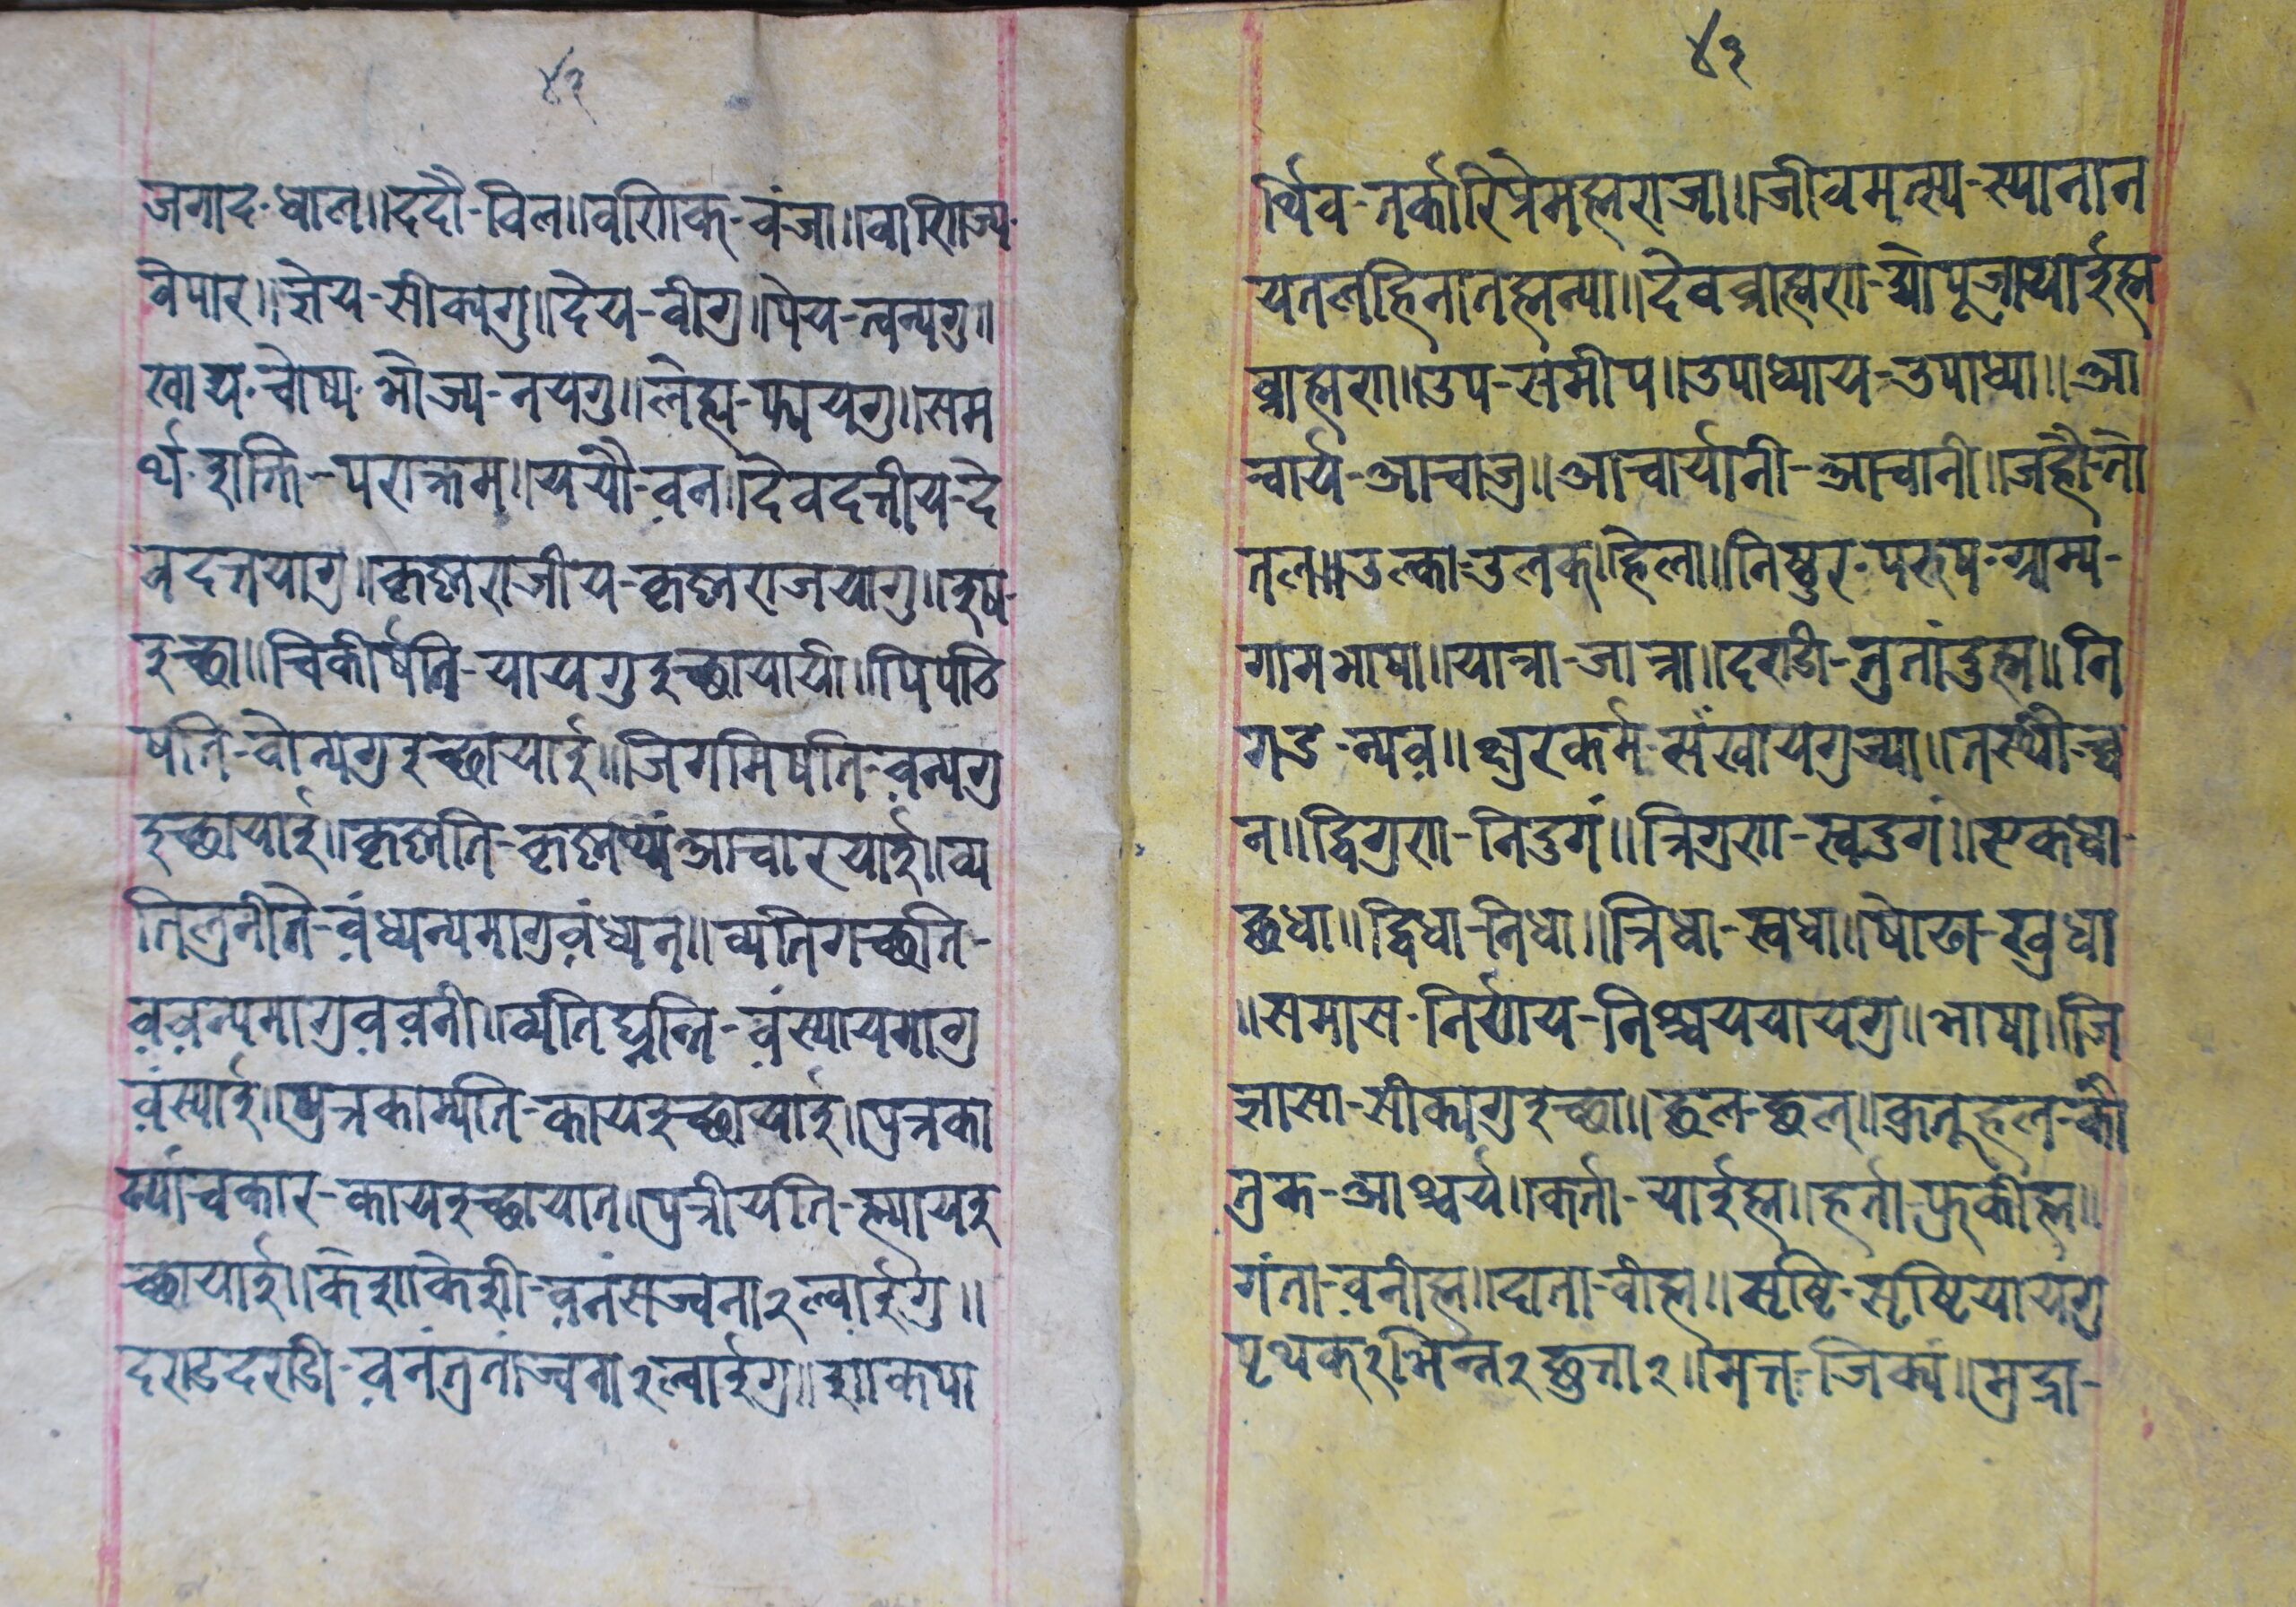 ४२
जगाद-धाल॥ददौ-विल॥वणिक्-वंजा॥वाणिज्य-
वेपार॥ज्ञेय-सीक्यगु॥देय-वीगु॥पेय-त्वन्यगु॥
खाद्य-चोष्य-भोज्य-नयगु॥लेह्य-फ्यायगु॥सम
र्थ-शक्ति-पराक्रम॥ययौ-वन॥देवदत्तीय-दे
वदत्तयागु॥कृष्णराजीय-कृष्णराजयागु॥इष-
इच्छा॥चिकीर्षति-यायगुइच्छायायी॥पिपठि
षति-वोन्यगुइच्छायाई॥जिगमिषति-वन्यगु
इच्छायाई॥कृष्णति-कृष्णथ्यंआचारयाई॥व्य
तिलुनीते-वंध्यन्यमागुवंध्येन॥व्यतिगच्छति-
ववन्यमागुववनी॥व्यतिघ्नन्ति-वंस्यायमागु
वंस्याई॥पुत्रकाम्यति-कायइच्छायाई॥पुत्रका
म्यांचकार-कायइच्छायात॥पुत्रीयति-ह्म्यायइ
च्छायाई॥केशाकेशी-वनंसंज्वना२ल्वाईगु॥
दण्डादण्डी-वनंतुतांज्वना२ल्वाईगु॥शाकपा
४३
र्थिव-तर्कारिप्रेमह्मराजा॥जीवमत्स्य-स्यानान
यतलहिनातह्मन्या॥देवब्राह्मण-द्योपूजायाईह्म
ब्राह्मण॥उप-समीप॥उपाध्याय-उपाध्या॥आ
चार्य-आचाजु॥आचार्यानी-आचानी॥जहौ-तो
तल॥उल्का-उलक्हिला॥निष्ठुर-परुष-ग्राम्य-
गामभाषा॥यात्रा-जात्रा॥दण्डी-तुतांदुह्म॥नि
गड-न्यव॥क्षुरकर्म-संखायगुज्या॥तस्थौ-च्व
न॥द्विगुण-निदुगं॥त्रिगुण-स्वदुगं॥एकधा-
छधा॥द्विधा-निधा॥त्रिधा-स्वधा॥षोढा-खुधा
॥समास-निर्णय-निश्चययायगु॥भाषा॥जि
ज्ञासा-सीकागुइच्छा॥छल-छल्॥कुतूहल-कौ
तुक-आश्चर्य॥कर्ता-याईह्म॥हर्ता-फुकीह्म॥
गंता-वनीह्म॥दाता-वीह्म॥सृष्टि-सृष्टियायगु
पृथक्२भिन्न२छुत्ता२॥मत्त-जिक्यं॥मुद्रा-